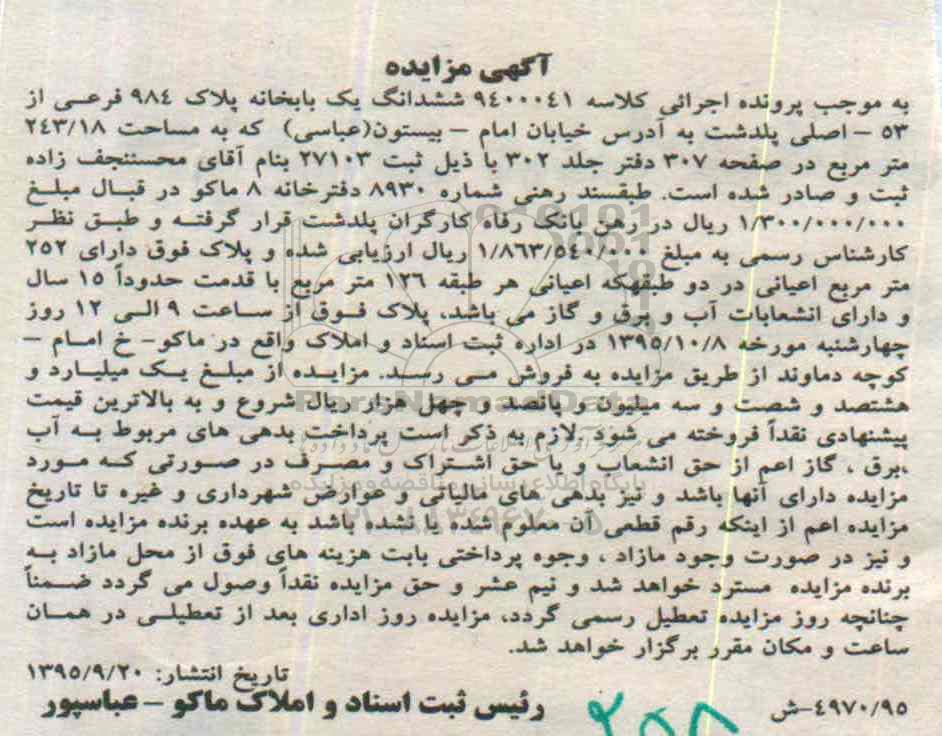 آگهی مزایده
به موجب پرونده اجرائی کلاسه ۹۴۰۰۰۴۱ ششدانگ یک بابخانه پلاک ۹۸۴ فرعی از
۵۳ – اصلی پلدشت به آدرس خیابان امام – بیستون(عباسی) که به مساحت ۲۴۳/۱۸
متر مربع در صفحه ۳۰۷ دفتر جلد ۳۰۲ با ذیل ثبت ۲۷۱۰۳ بنام آقای محسننجف زاده
ثبت و صادر شده است. طبقسند رهنی شماره ۸۹۳۰ دفترخانه ۸ ماکو در قبال مبلغ
۱/۳۰۰/۰۰۰/۰۰۰ ریال در رهن بانک رفاه کارگران پلدشت قرار گرفته و طبق نظر
کارشناس رسمی به مبلغ ۱/۸۶۳/۵۴۰/۰۰۰ ریال ارزیابی شده و پلاک فوق دارای ۲۵۲
متر مربع اعیانی در دو طبقهکه اعیانی هر طبقه ۱۲۶ متر مربع با قدمت حدوداً ۱۵ سال
و دارای انشعابات آب و برق و گاز می باشد، پلاک فوق از ساعت ۹ الی ۱۲ روز
چهارشنبه مورخه ۱۳۹۵/۱۰/۸ در اداره ثبت اسناد و املاک واقع در ماکو- خ امام –
کوچه دماوند از طریق مزایده به فروش می رسد. مزایده از مبلغ یک میلیارد و
هشتصد و شصت و سه میلیون و پانصد و چهل هزار ریال شروع و به بالاترین قیمت
پیشنهادی نقداً فروخته می شود .لازم به ذکر است پرداخت بدهی های مربوط به آب
،برق ، گاز اعم از حق انشعاب و یا حق اشتراک و مصرف در صورتی که مورد
مزایده دارای آنها باشد و نیز بدهی های مالیاتی و عوارض شهرداری و غیره تا تاریخ
مزایده اعم از اینکه رقم قطعی آن معلوم شده یا نشده باشد به عهده برنده مزایده است
و نیز در صورت وجود مازاد ، وجوه پرداختی بابت هزینه های فوق از محل مازاد به
برنده مزایده مسترد خواهد شد و نیم عشر و حق مزایده نقداً وصول می گردد ضمناً
چنانچه روز مزایده تعطیل رسمی گردد، مزایده روز اداری بعد از تعطیلی در همان
ساعت و مکان مقرر برگزار خواهد شد.
تاریخ انتشار: ۱۳۹۵/۹/۲۰
رئیس ثبت اسناد و املاک ماکو – عباسپور
۴۹۷۰/۹۵-ش
ParsNamadData
پایگاه اطلاع رسانی مناقصه و مزایده